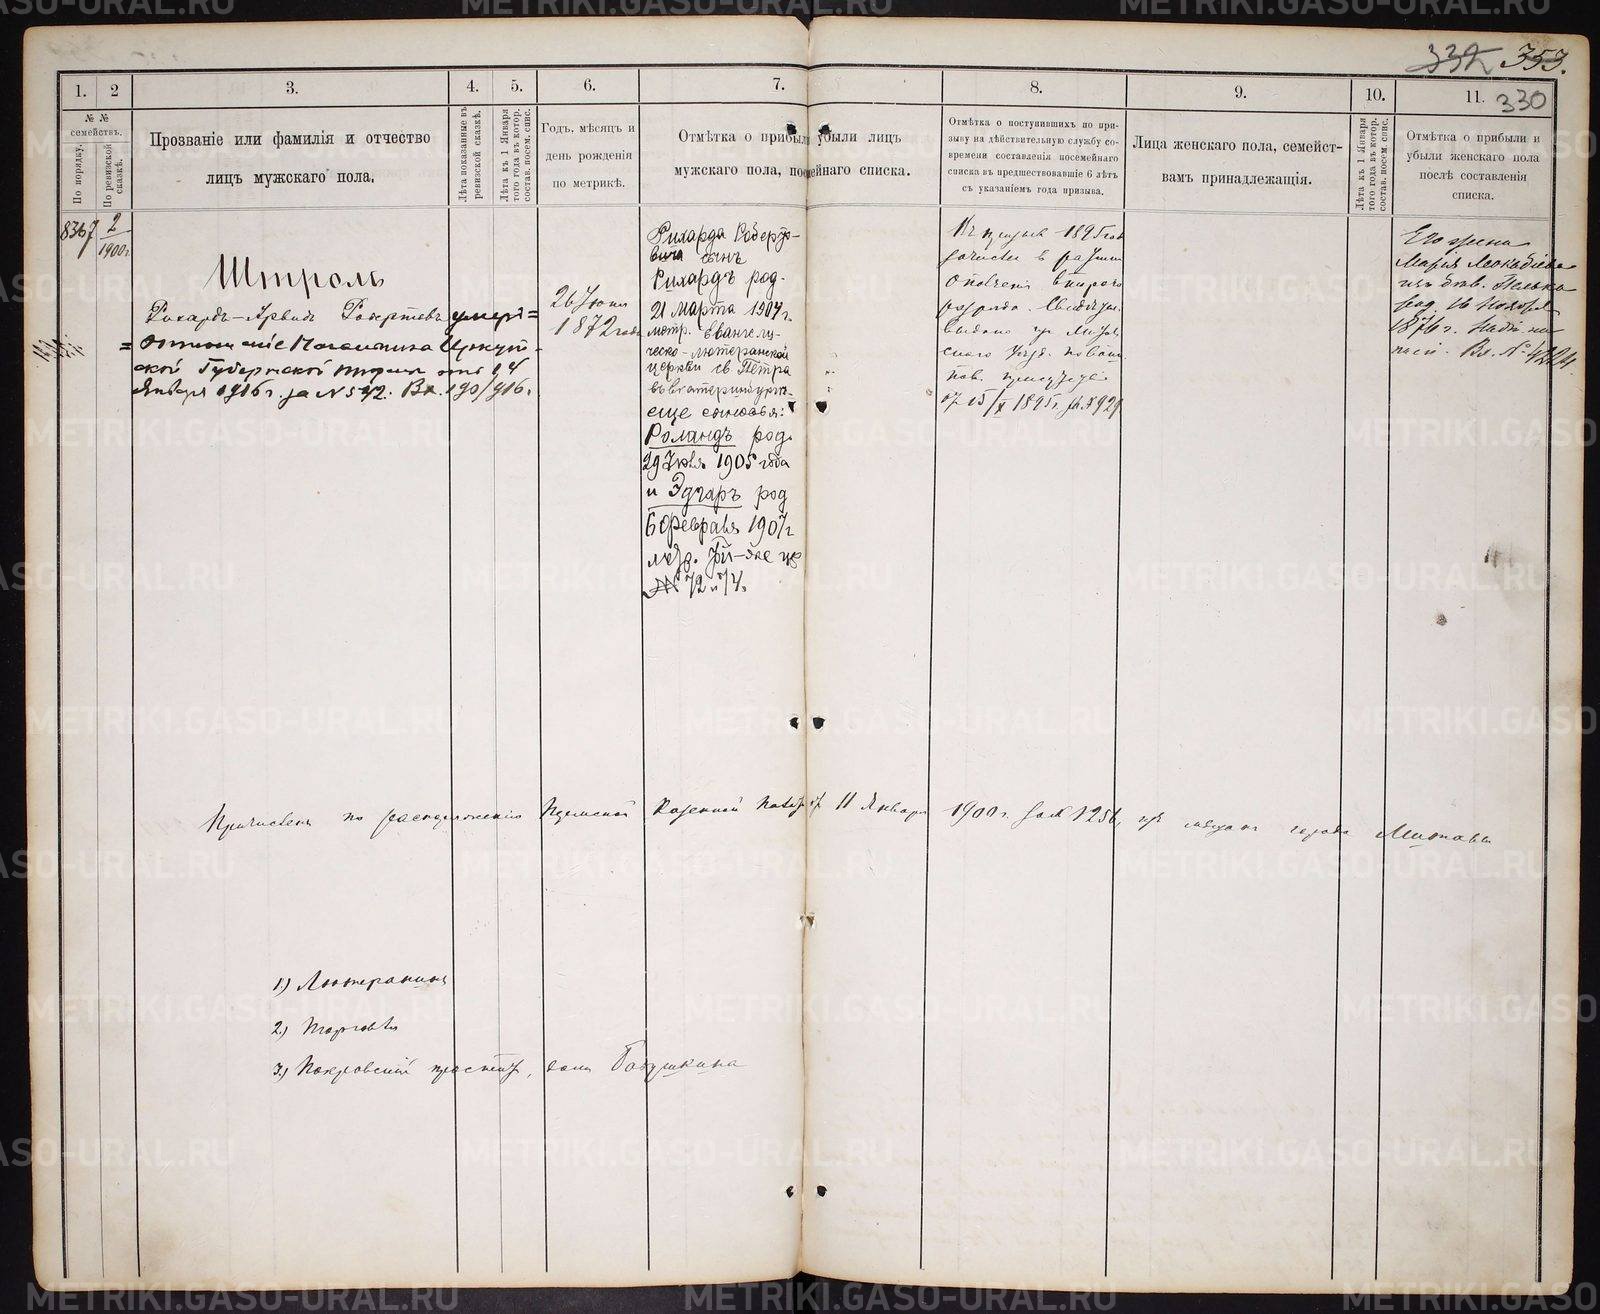 332 353.
330
1.
2
3.
4.
5.
6.
7.
8.
9.
10.
11.
№ №
семействъ.
По порядку.
По ревизской
сказкѣ.
Прозваніе или фамилія и отчество
лицъ мужскаго пола.
Лѣта показанные въ
ревизской сказкѣ.
Лѣта къ 1 Января
того года въ котор.
состав. посем. спис.
Годъ, мѣсяцъ и
день рожденія
по метрикѣ.
Отмѣтка о прибыли убыли лицъ
мужскаго пола, посемейнаго списка.
Отмѣтка о поступившихъ по при-
зыву на дѣйствительную службу со-
времени составленія посемейнаго
списка въ предшествовавшіе 6 лѣтъ
съ указаніемъ года призыва.
Лица женскаго пола, семейст-
вамъ принадлежащія.
Лѣта къ 1 Января
того года въ котор.
состав. посем. спис.
Отмѣтка о прибыли и
убыли женскаго пола
послѣ составленія
списка.
8367
2
1900г.
Штроль
Рихардъ-Арвидъ Робертовъ умеръ=
= отношеніе Начальника Иркут-
ской Губернской тюрьмы отъ 24
Января 1916 г. за № 542. Вх. 190/916.
26 Іюня
1872 года
Рихарда Роберто-
вича сынъ
Рихардъ род.
21 Марта 1904 г.
метр. Евангели-
ческо-лютеранской
церкви св Петра
въ Екатеринбургѣ-
еще сыновья:
Роландъ род.
29 Іюля 1905 года
и Эдгаръ род
6 Февраля 1907 г
метр. той-же цер
№ 72 и 74.
Въ призывъ 1895 год
зачисленъ в ратники
Ополченія втораго
разряда. Свидѣтел.
выдано
по воин
пов. присутст.
отъ 15/X 1895 г. за № 929
Его жена
Марія
изъ дѣв.
род. 16 Ноября
1876 г.
Вх. № 4224.
Причисленъ по распоряженію Пермской Казенной Палаты отъ 11 Января 1900 г. за № 1256, изъ мѣщанъ города Митавы
1.) Лютеранинъ
2.) Торговля
3.) Покровскій проспектъ, домъ Бабушкина
METRIKI.GASO-URAL.RU